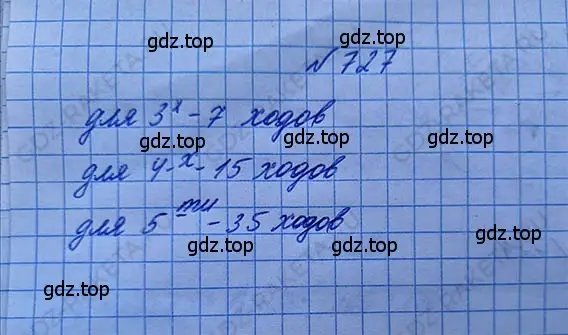 gdz.top
№ 727
gdz.top gdz.top gdz.top
для 3х - 7 ходов
gdz.top gdz.top gdz.top
для 4-х - 15 ходов
для 5 ти - 35 ходов
gdz.top gdz.top
gdz.top gdz.top